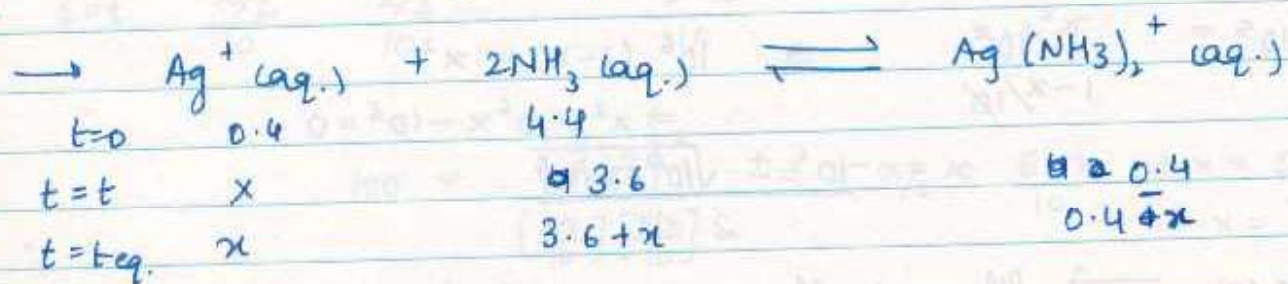 → Ag⁺ (aq.) + 2NH₃ (aq.) ⇌ Ag(NH3)₂⁺ (aq.)
t=0 0.4 4.4
t=t x 3.6 0.4
t=teq. x 3.6+x 0.4-x